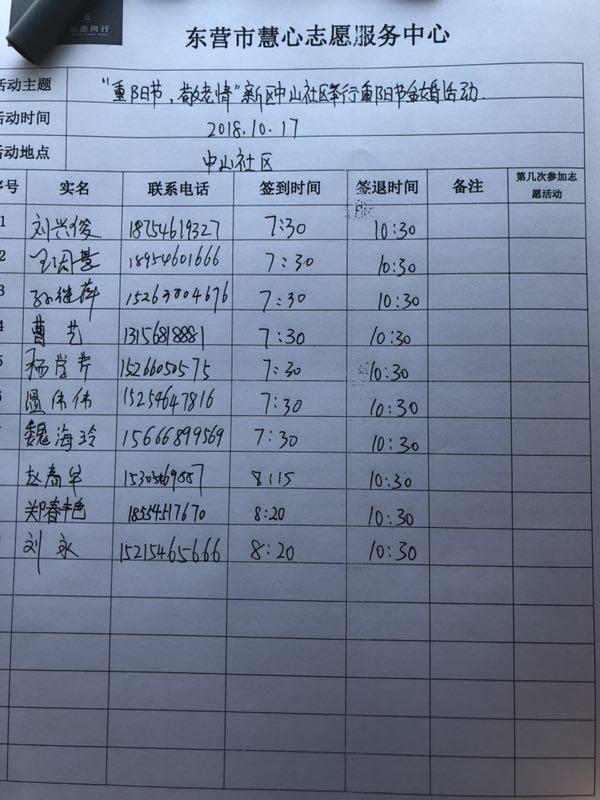 愿同行
东营市慧心志愿服务中心
活动主题 “重阳节,敬老情”新区中山社区举行重阳节金婚活动.
活动时间 2018.10.17
活动地点 中山社区
序号 实名 联系电话 签到时间 签退时间 备注 第几次参加志愿活动
1 刘兴俊 18754619327 7:30 10:30
2 18954601666 7:30 10:30
3 孙继萍 15263004676 7:30 10:30
4 曹艺 13156818881 7:30 10:30
5 杨学芹 15266050575 7:30 10:30
6 温伟伟 15254647816 7:30 10:30
魏海玲 15666899569 7:30 10:30
赵春华 8:15 10:30
郑春艳 18554517670 8:20 10:30
刘永 15215465666 8:20 10:30